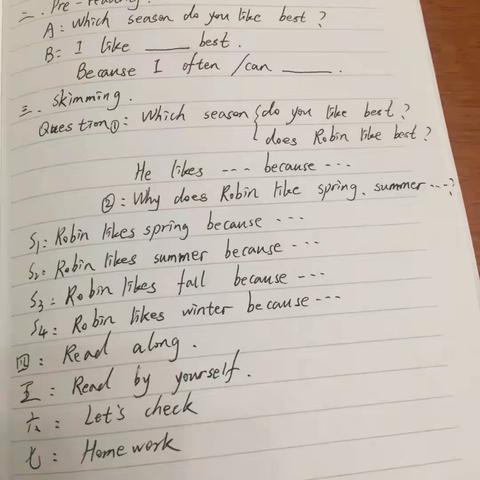 二. Pre-reading.
A: Which season do you like best?
B: I like ____ best.
Because I often /can ____.
三. Skimming.
Question①: Which season { do you like best?
does Robin like best?
He likes --- because ---
②: Why does Robin like spring, summer ---?
S1: Robin likes spring because ---
S2: Robin likes summer because ---
S3: Robin likes fall because ---
S4: Robin likes winter because ---
四: Read along.
五: Read by yourself.
六: Let's check
七: Homework